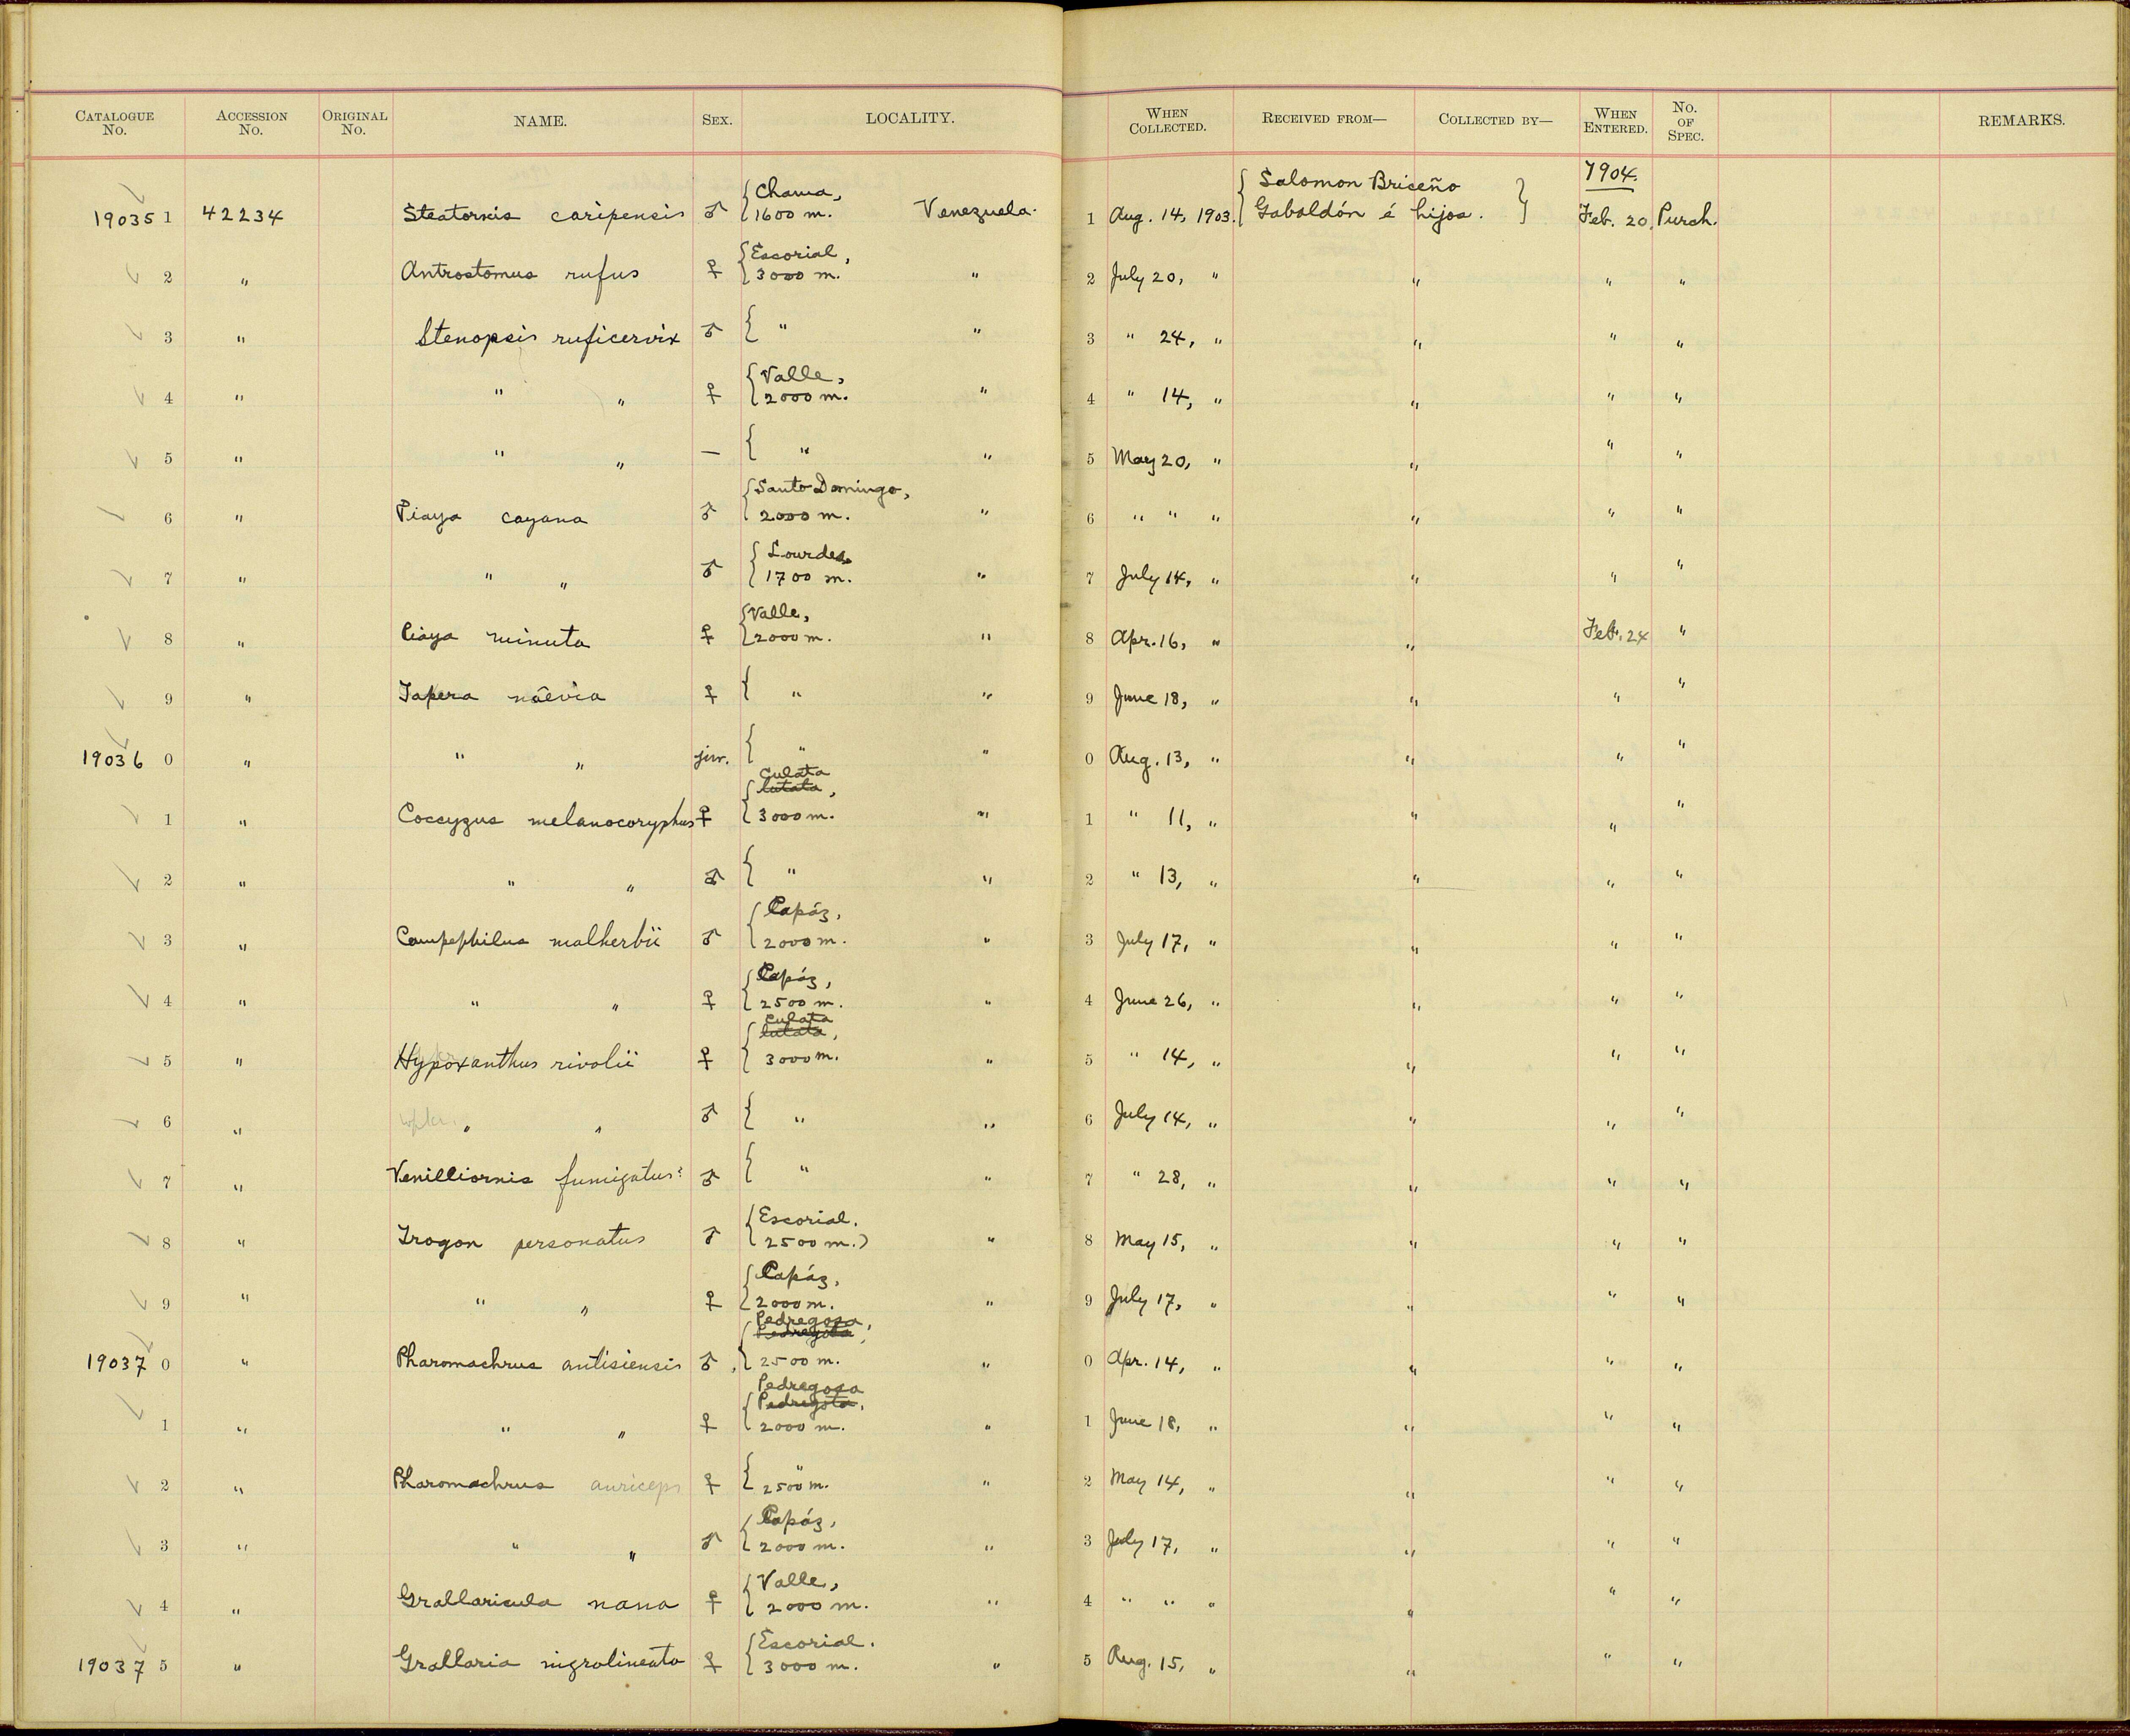 CATALOGUE No. ACCESSION No. ORIGINAL No. NAME. SEX. LOCALITY. WHEN COLLECTED. RECEIVED FROM— COLLECTED BY— WHEN ENTERED. No. OF SPEC. REMARKS.
1904.
Chama, Salomon Briseño
19035 1 42234 Steatornis caripensis ♂ 1600 m. Venezuela. 1 Aug. 14, 1903. Gabaldón é hijos. Feb. 20, Purch.
Escorial,
2 " Antrostomus rufus ♀ 3000 m. " 2 July 20, " " " "
3 " Stenopsis ruficervix ♂ " " 3 " 24, " " " "
Valle,
4 " " " ♀ 2000 m. " 4 " 14, " " " "
5 " " " — " " 5 May 20, " " " "
Santo Domingo,
6 " Piaya cayana ♂ 2000 m. " 6 " " " " " "
Lourdes
7 " " " ♂ 1700 m. " 7 July 14, " " " "
Valle,
8 " Piaya minuta ♀ 2000 m. " 8 Apr. 16, " " Feb. 24 "
9 " Tapera naevia ♀ " " 9 June 18, " " " "
19036 0 " " " juv. " " 0 Aug. 13, " " " "
Culata
lutata,
1 " Coccyzus melanocoryphus ♀ 3000 m. " 1 " 11, " " " "
2 " " " ♂ " " 2 " 13, " " " "
Capáz,
3 " Campephilus malherbii ♂ 2000 m. " 3 July 17, " " " "
Capáz,
4 " " " ♀ 2500 m. " 4 June 26, " " " "
Culata
lutata,
5 " Hypoxanthus rivolii ♀ 3000 m. " 5 " 14, " " " "
6 " " " ♂ " " 6 July 14, " " " "
7 " Venilliornis fumigatus? ♂ " " 7 " 28, " " " "
Escorial.
8 " Trogon personatus ♂ 2500 m.) " 8 May 15, " " " "
Capáz,
9 " " " ♀ 2000 m. " 9 July 17, " " " "
Pedregosa,
Pedregota,
19037 0 " Pharomachrus antisiensis ♂ 2500 m. " 0 Apr. 14, " " " "
Pedregosa
Pedregota,
1 " " " ♀ 2000 m. " 1 June 18, " " " "
2 " Pharomachrus auriceps ♀ " 2500 m. " 2 May 14, " " " "
Capáz,
3 " " " ♂ 2000 m. " 3 July 17, " " " "
Valle,
4 " Grallaricula nana ♀ 2000 m. " 4 " " " " " "
Escorial.
19037 5 " Grallaria nigrolineata ♀ 3000 m. " 5 Aug. 15, " " " "